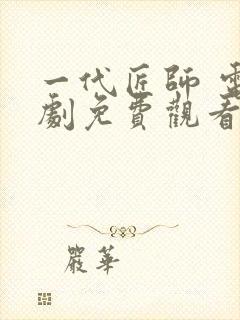 一代匠師 電
劇免費觀看
嚴華